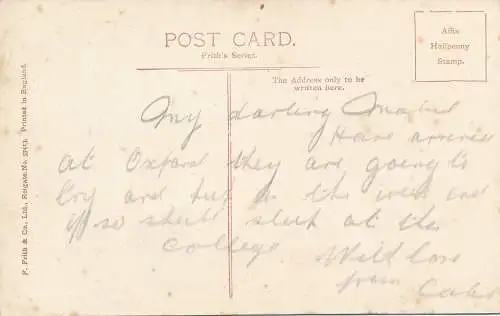 POST CARD.
Frith's Series.
Affix
Halfpenny
Stamp.
The Address only to be
written here.
F. Frith & Co., Ltd., Reigate. No. Printed in England.
My darling Mabel
Have arrived
at Oxford they are going to
try and put in the and
if so shall sleep at the
College. With love
from